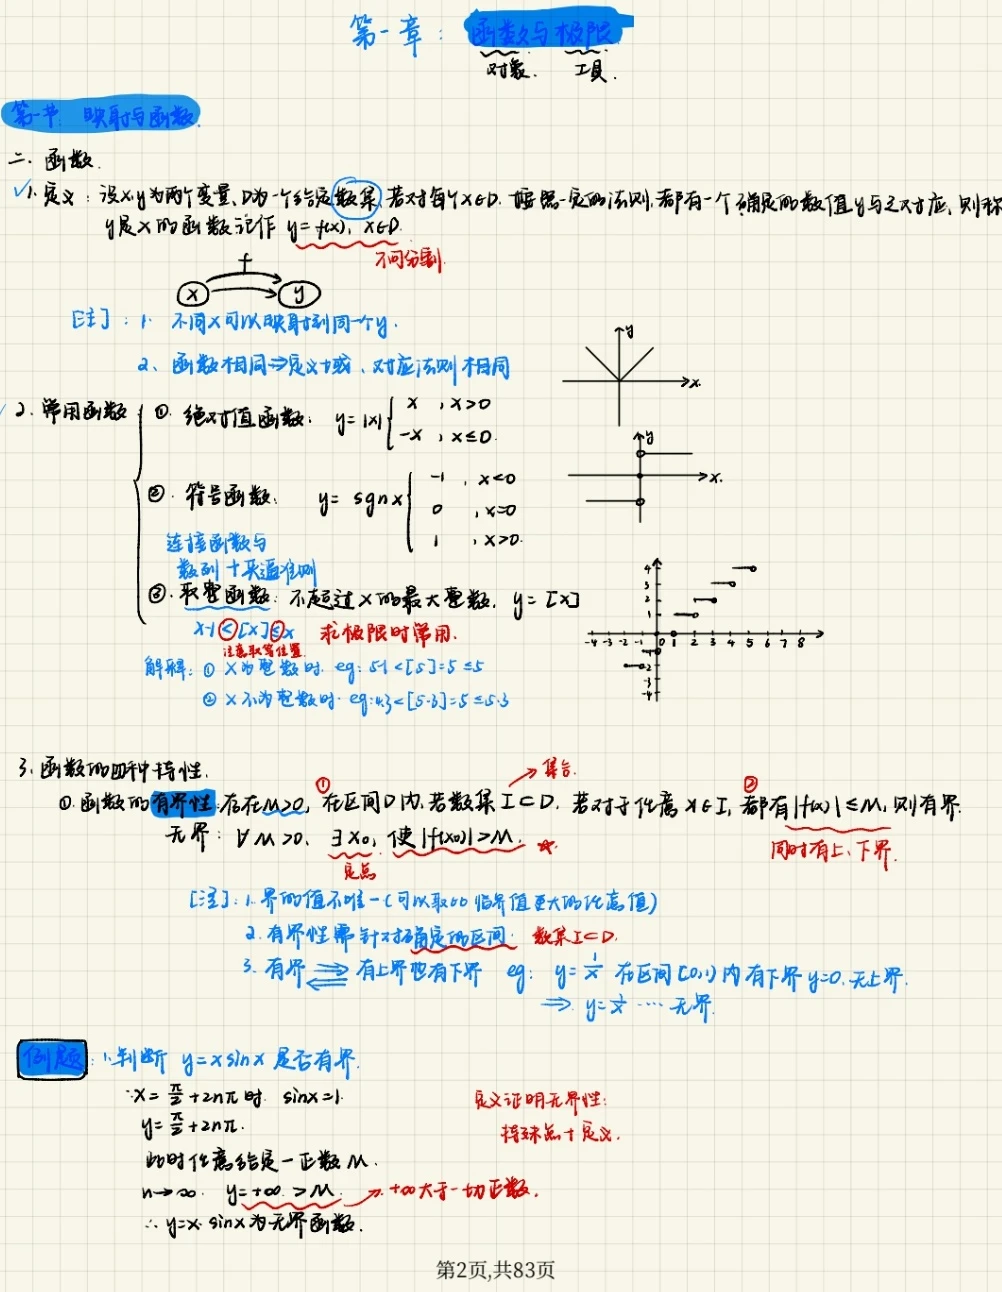 第一章：函数与极限
对象. 工具.
第一节 映射与函数.
二. 函数.
√1. 定义：设x,y为两个变量,D为一个给定数集,若对每个x∈D,按照一定的法则,都有一个确定的数值y与之对应,则称
y是x的函数记作 y=f(x), x∈D.
不可分割.
f
x y
[注]：1. 不同x可以映射到同一个y.
2、函数相同⇒定义域、对应法则相同
y
x.
2. 常用函数
①. 绝对值函数: y=|x| { x , x>0
-x , x≤0.
y
x.
②. 符号函数. y= sgnx { -1 , x<0
0 , x=0
1 , x>0.
连接函数与
数列+夹逼准则
③. 取整函数: 不超过x的最大整数. y=[x]
x-1<[x]≤x 求极限时常用.
注意取等位置
解释: ① x为整数时. eg: 5-1<[5]=5≤5
② x不为整数时. eg:4.3<[5.3]=5≤5.3
4
3
2
1
-4 -3 -2 -1 0 1 2 3 4 5 6 7 8
-1
-2
-3
-4
3. 函数的四种特性.
① ② → 集合.
①. 函数的有界性:存在M>0, 在区间D内,若数集I⊂D. 若对于任意x∈I, 都有|f(x)|≤M,则有界.
无界: ∀M>0, ∃x₀, 使|f(x₀)|>M. ☆
定点
同时有上、下界.
[注]: 1. 界的值不唯一(可以取比临界值更大的任意值)
2. 有界性需针对确定的区间. 数集I⊂D.
3. 有界⇌有上界也有下界 eg: y=1/x 在区间(0,1)内有下界y=0,无上界.
⇒ y=1/x ⋯ 无界.
例题: 1.判断 y=xsinx 是否有界.
∵x=π/2+2nπ时. sinx=1.
y=π/2+2nπ.
此时任意给定一正数M.
n→∞. y=+∞>M. → +∞大于一切正数.
∴ y=x·sinx为无界函数.
定义证明无界性:
特殊点+定义.
第2页,共83页